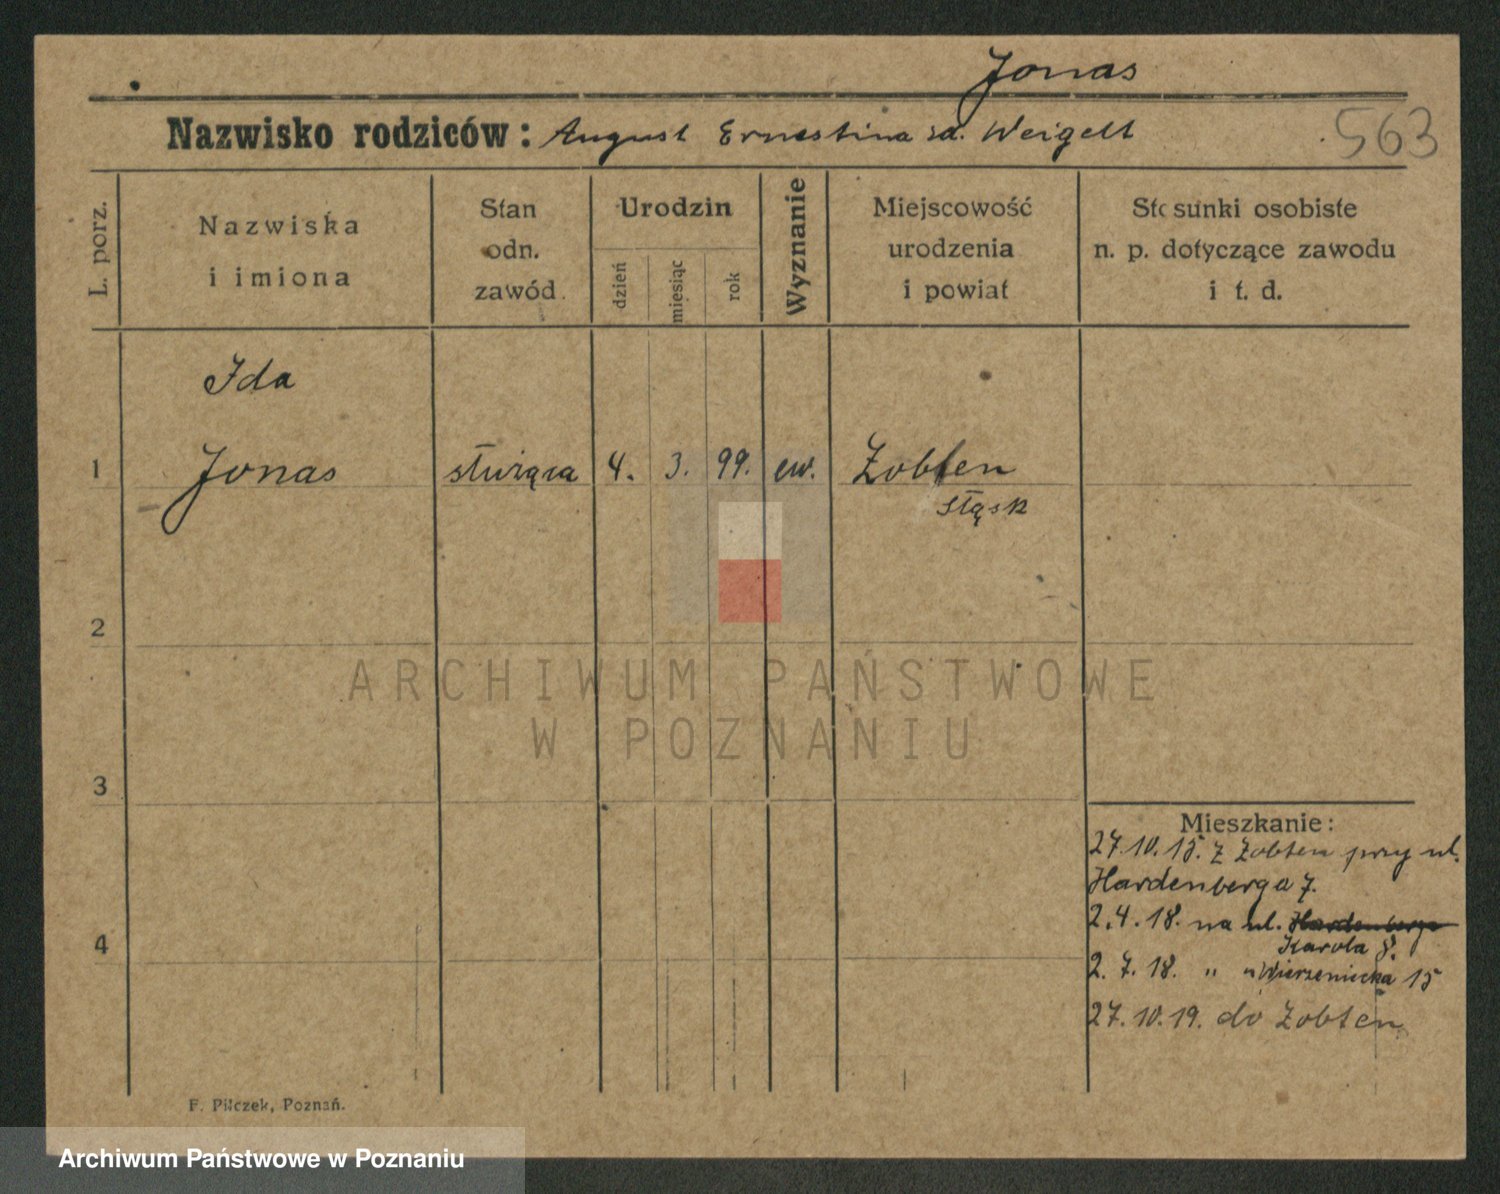 Jonas
Nazwisko rodziców: August Ernestina zd. Weigelt
563
L. porz.
Nazwiska
i imiona
Stan
odn.
zawód
Urodzin
dzień
miesiąc
rok
Wyznanie
Miejscowość
urodzenia
i powiat
Stosunki osobiste
n. p. dotyczące zawodu
i t. d.
Ida
1 Jonas służąca 4. 3. 99. ew. Zobten
Śląsk
2
ARCHIWUM PAŃSTWOWE
W POZNANIU
3
Mieszkanie:
27.10.15. z Zobten przy ul.
Hardenberga 7.
4
2.4.18. na ul. Hardenberga
Karola 8.
2.7.18. " " Wierzeniecka 15
27.10.19. do Zobten
F. Pilczek, Poznań.
Archiwum Państwowe w Poznaniu